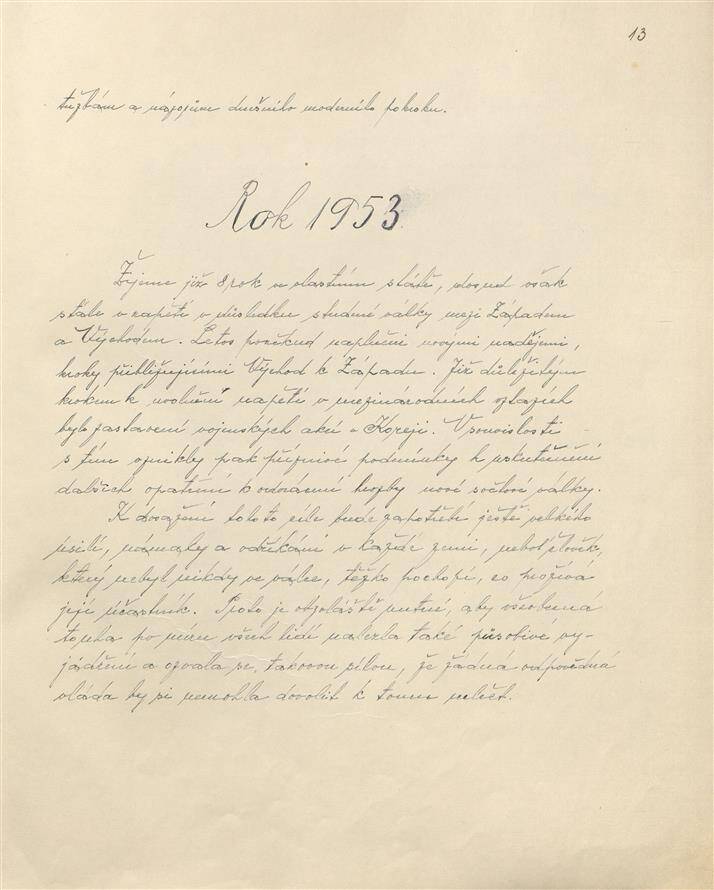 13
tužbám a názorům dnešního moderního pokroku.
Rok 1953
Žijeme již 8 rok ve vlastním státě, dosud však
stále v napětí v důsledku studené války mezi Západem
a Východem. Letos poněkud naplněni novými nadějemi,
kroky přibližujícími Východ k Západu. Již důležitým
krokem k uvolnění napětí v mezinárodních vztazích
bylo zastavení vojenských akcí v Koreji. V souvislosti
s tím vznikly pak příznivé podmínky k uskutečnění
dalších opatření k odvrácení hrozby nové světové války.
K dosažení tohoto cíle bude zapotřebí ještě velkého
úsilí, námahy a odříkání v každé zemi, neboť člověk,
který nebyl nikdy ve válce, těžko pochopí, co prožívá
její účastník. Proto je obzvláště nutné, aby všeobecná
touha po míru všech lidí nalezla také působivé vy-
jádření a ozvala se takovou silou, že žádná odpovědná
vláda by si nemohla dovolit k tomu mlčet.